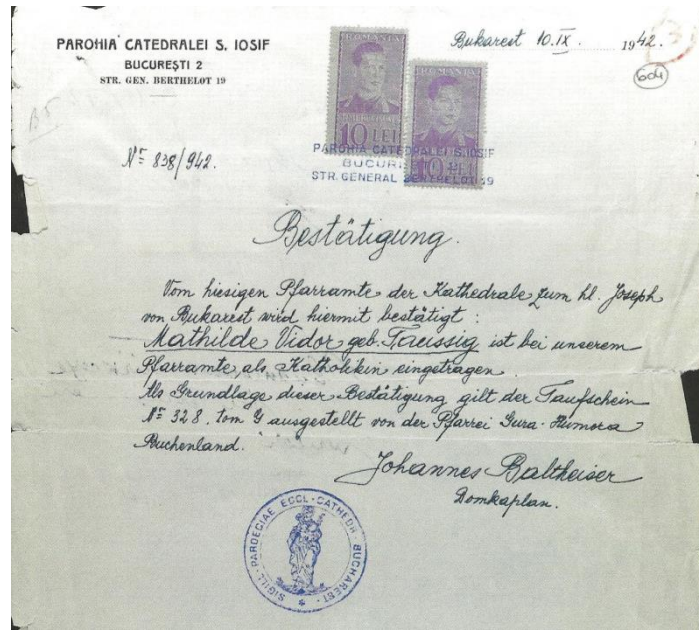 PAROHIA CATEDRALEI S. IOSIF
BUCUREȘTI 2
STR. GEN. BERTHELOT 19
Bukarest 10.IX. 1942.
604
Nº 838/942.
ROMANIA
10 LEI
ROMANIA
10 LEI
PAROHIA CATEDRALEI S. IOSIF
BUCUR
STR. GENERAL BERTHELOT 19
Bestätigung.
Vom hiesigen Pfarramte der Kathedrale zum hl. Joseph
von Bukarest wird hiermit bestätigt :
Mathilde Vidor geb. Taussig ist bei unserem
Pfarramte als Katholikin eingetragen.
Als Grundlage dieser Bestätigung gilt der Taufschein
Nº 328. tom G ausgestellt von der Pfarrei Gura-Humora
Buchenland.
Johannes Baltheiser
Domkaplan.
SIGILL. PAROECIAE ECCL. CATHEDR. BUCHAREST.